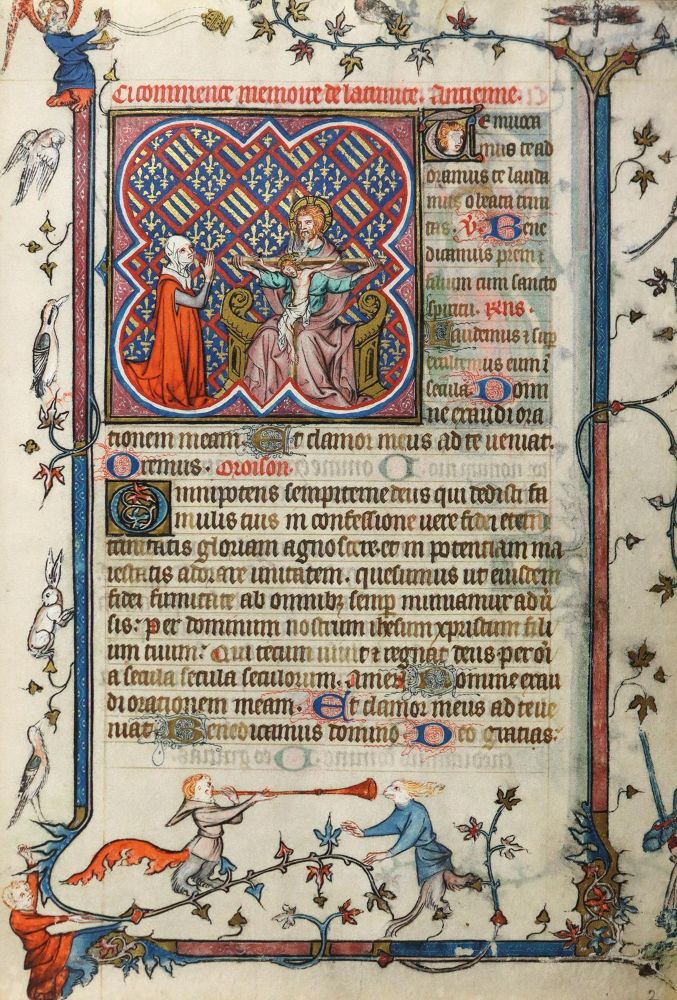 Ci commence memoire de la trinite. Antienne.
Te inuoca
mus te ad
oramus te lauda
mus o beata trini
tas. V. Bene
dicamus prem ⁊
filium cum sancto
spiritu. Rns.
Laudemus ⁊ sup
exaltemus eum ī
secula. Domi
ne exaudi ora
tionem meam. Et clamor meus ad te ueniat.
Oremus. Oroison.
Omnipotens sempiterne deus qui dedisti fa
mulis tuis in confessione uere fidei eterne
trinitatis gloriam agnoscere. et in potentiam ma
iestatis adorare unitatem. quesumus ut eiusdem
fidei firmitate ab omnibꝫ semp muniamur adū
sis. Per dominum nostrum ihesum xpristum fili
um tuum. Qui tecum uiuit ⁊ regnat deus per oīa
a secula secula seculorum. Amen Domine exau
di orationem meam. Et clamor meus ad te ue
niat Benedicamus domino Deo gratias.